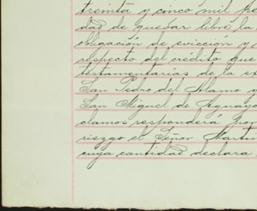 treinta y cinco mil
dad de quedar libre la
obligación de evicción y
respecto del crédito que
testamentarias de la
San Pedro del Alamo y
San Miguel de Aguayo
clamos responderá por
riezgo el Señor Martin
cuya cantidad declara